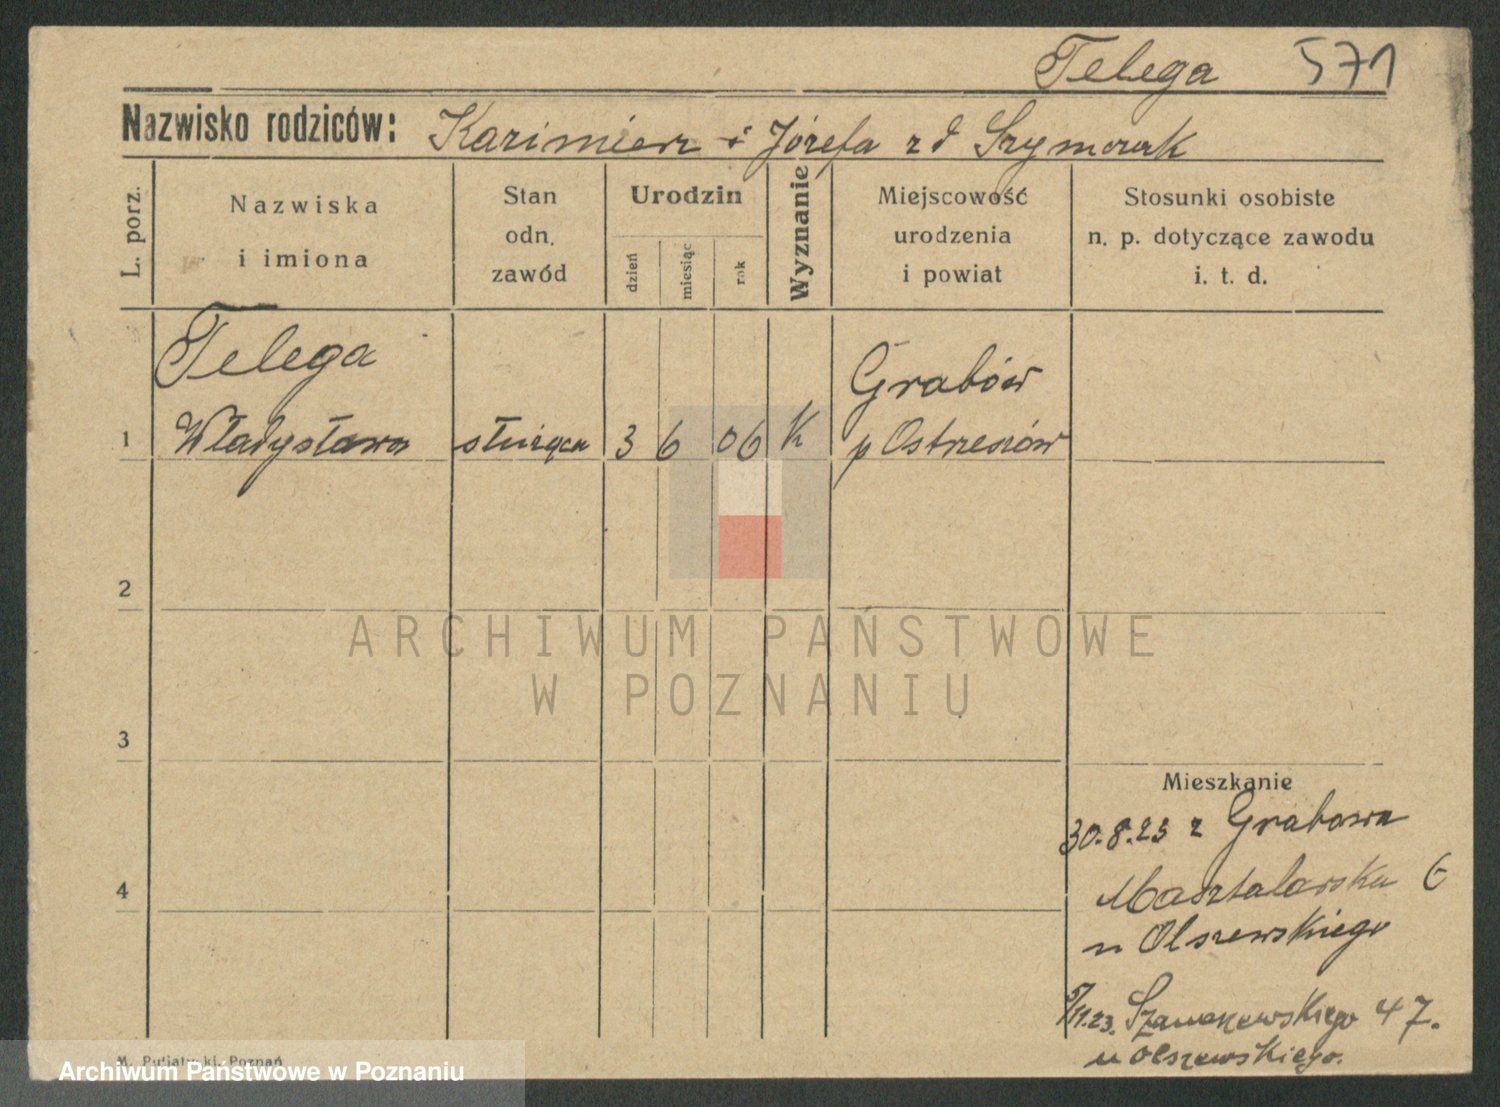 Telega 571
Nazwisko rodziców: Kazimierz i Józefa zd Szymczak
L. porz.
Nazwiska
i imiona
Stan
odn.
zawód
Urodzin
dzień
miesiąc
rok
Wyznanie
Miejscowość
urodzenia
i powiat
Stosunki osobiste
n. p. dotyczące zawodu
i. t. d.
Telega Grabów
1 Władysława służąca 3 6 06 K p Ostrzeszów
2
ARCHIWUM PAŃSTWOWE
W POZNANIU
3
Mieszkanie
30.8.23 z Grabowa
4 Masztalarska 6
u Olszewskiego
5/11.23. 47.
u Olszewskiego.
M. Putiatycki, Poznań
Archiwum Państwowe w Poznaniu